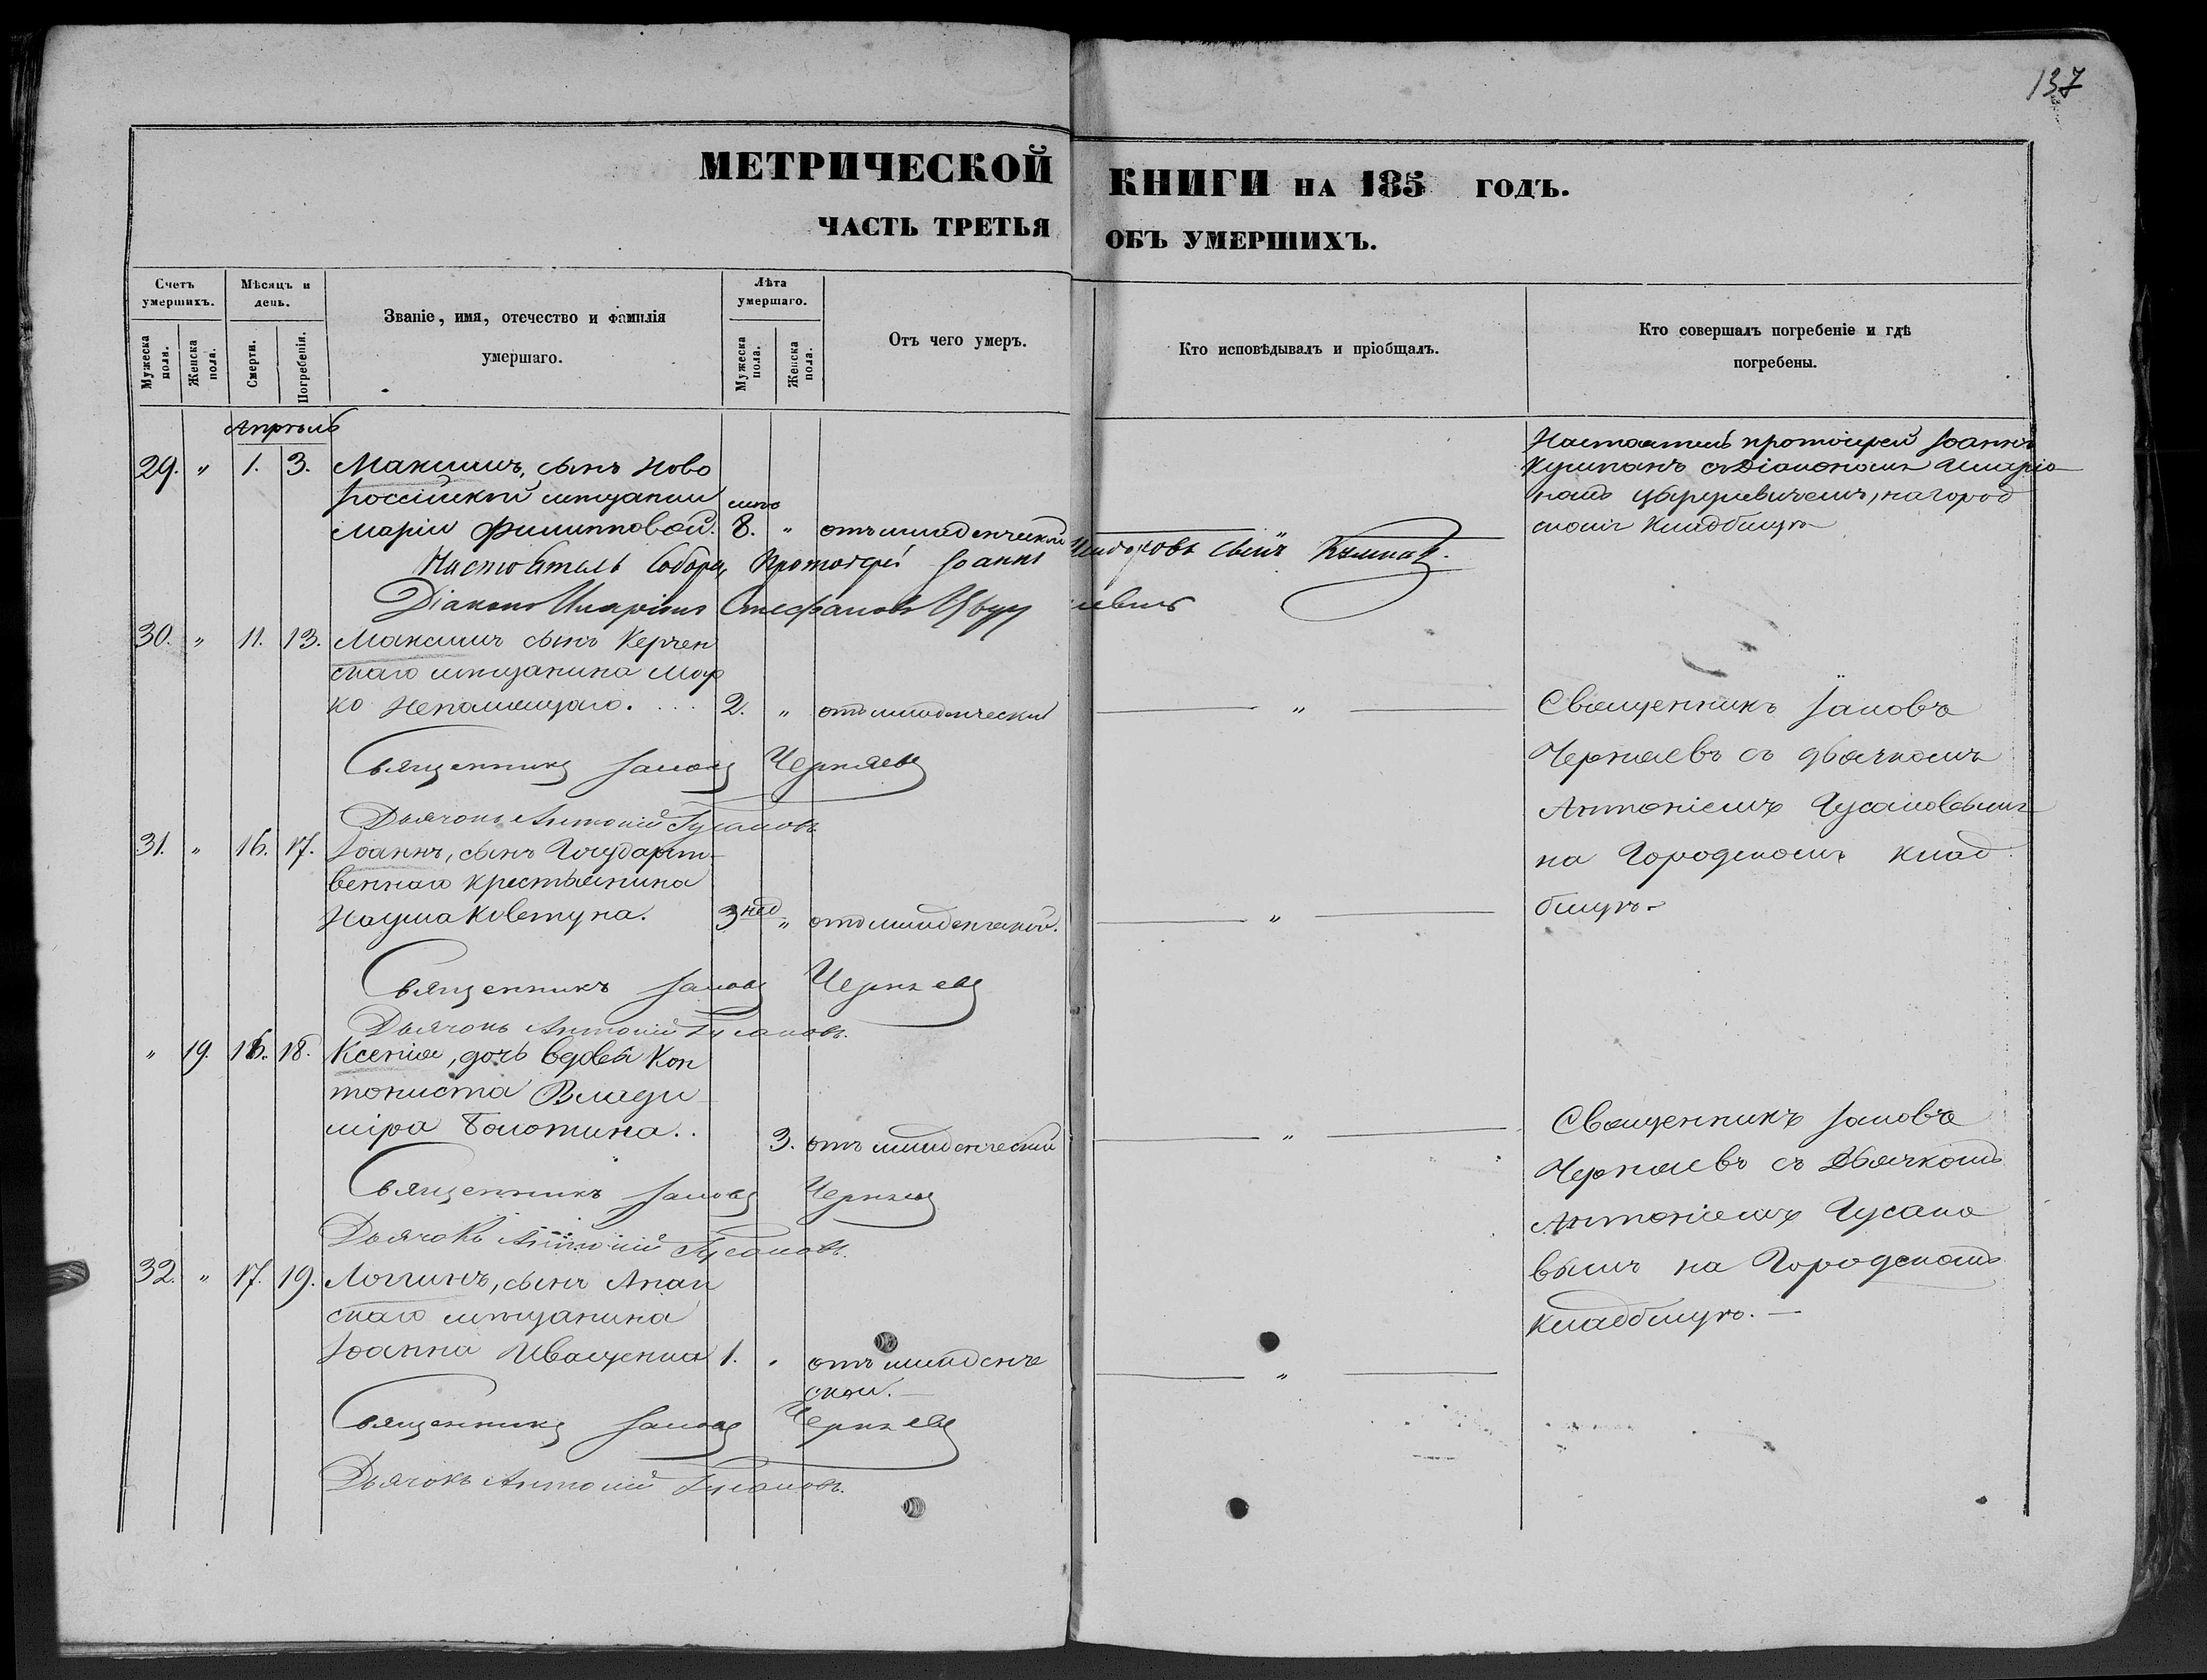 137
МЕТРИЧЕСКОЙ КНИГИ НА 185 ГОДЪ.
ЧАСТЬ ТРЕТЬЯ ОБЪ УМЕРШИХЪ.
Счетъ умершихъ.
Мужеска пола.
Женска пола.
Мѣсяцъ и день.
Смерти.
Погребенія.
Званіе, имя, отечество и фамилія умершаго.
Лѣта умершаго.
Мужеска пола.
Женска пола.
Отъ чего умеръ.
Кто исповѣдывалъ и пріобщалъ.
Кто совершалъ погребеніе и гдѣ погребены.
Апрѣль
29. " 1. 3. Максимъ, сынъ Ново
россійской мѣщанки
Маріи Филипповой. 8. " отъ младенческой
Настоятель протоіерей Іоаннъ
съ Діакономъ Иларіо
номъ на город
скомъ кладбищѣ
Настоятель Собора, Протоіерей Іоаннъ сынъ
Діаконъ Иларіонъ Стефановъ
30. " 11. 13. Максимъ сынъ Керчен
скаго мѣщанина Мар
ко Непомнящаго. . . . 2. " отъ младенческой "
Священникъ Іаковъ Черняевъ
Дьячокъ Антоній Гусаковъ
Священникъ Іаковъ
Черняевъ съ дьячкомъ
Антоніемъ Гусаковымъ
на Городскомъ клад
бищѣ
31. " 16. 17. Іоаннъ, сынъ Государст
веннаго крестьянина
Наума Ковтуна. 3 нед " отъ младенческой. "
Священникъ Іаковъ Черняевъ
Дьячокъ Антоній Гусаковъ.
" 19. 16. 18. Ксенія, дочь вдовы Кан
тониста Влади
міра Болотина.. 3. отъ младенческой "
Священникъ Іаковъ Черняевъ
Дьячокъ Антоній Гусаковъ.
Священникъ Іаковъ
Черняевъ съ Дьячкомъ
Антоніемъ Гусако
вымъ на Городскомъ
кладбищѣ. —
32. " 17. 19. Логгинъ, сынъ Анап
скаго мѣщанина
Іоанна Иващенка 1. " отъ младенче
ской. — "
Священникъ Іаковъ Черняевъ
Дьячокъ Антоній Гусаковъ.